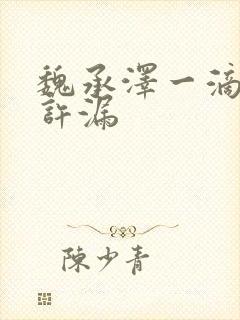 魏承澤一滴
許漏
陳少青